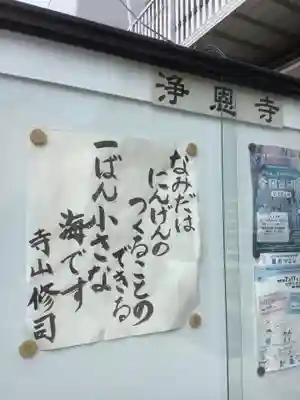 浄恩寺
なみだは
にんげんの
つくることの
できる
一ばん小さな
海です
寺山修司